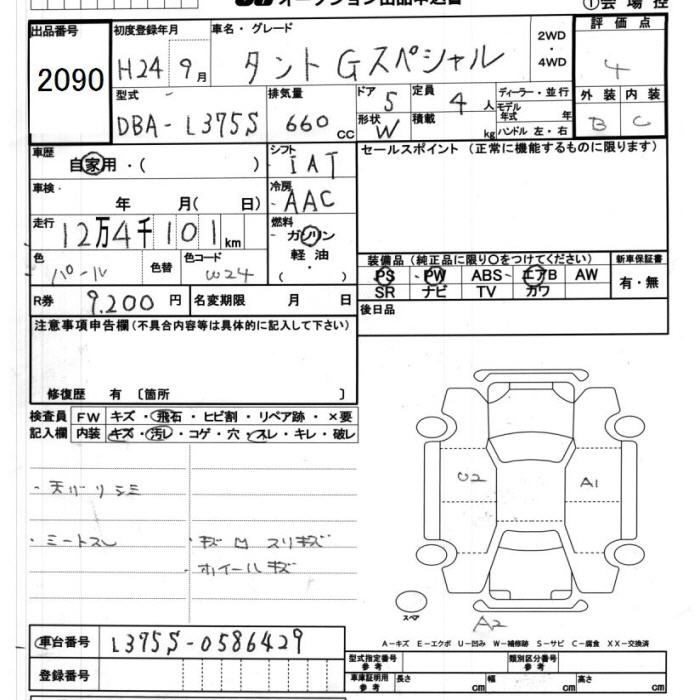 オークション出品申込書
①会場控
出品番号 初度登録年月 車名・グレード 2WD ・ 4WD 評価点
2090 H24 9月 タント Gスペシャル 4
型式 排気量 ドア 5 定員 4人 ディーラー・並行 外装 内装
DBA-L375S 660 cc 形状 W 積載 kg モデル年式 年 ハンドル 左・右 B C
車歴 自家用・( ) シフト IAT セールスポイント (正常に機能するものに限ります)
車検 年 月( 日) 冷房 AAC
走行 12万4千101 km 燃料 ガソリン
軽油
・
( )
色 パール 色替 色コード W24
装備品(純正品に限り○をつけてください) 新車保証書
PS PW ABS エアB AW 有・無
SR ナビ TV カワ
R券 9,200円 名変期限 月 日 後日品
注意事項申告欄(不具合内容等は具体的に記入して下さい)
修復歴 有 〔箇所 〕
検査員 FW キズ・飛石・ヒビ割・リペア跡・×要
記入欄 内装 キズ・汚レ・コゲ・穴・スレ・キレ・破レ
・天バリシミ
・ミートスレ ・キズ ロ スリキズ
・ホイールキズ
U2 A1
スペア
A2
A-キズ E-エクボ U-凹み W-補修跡 S-サビ C-腐食 XX-交換済
車台番号 L375S-0586429
登録番号
型式指定番号 参考 類別区分番号 参考
車庫証明用 参考 長さ cm 幅 cm 高さ cm